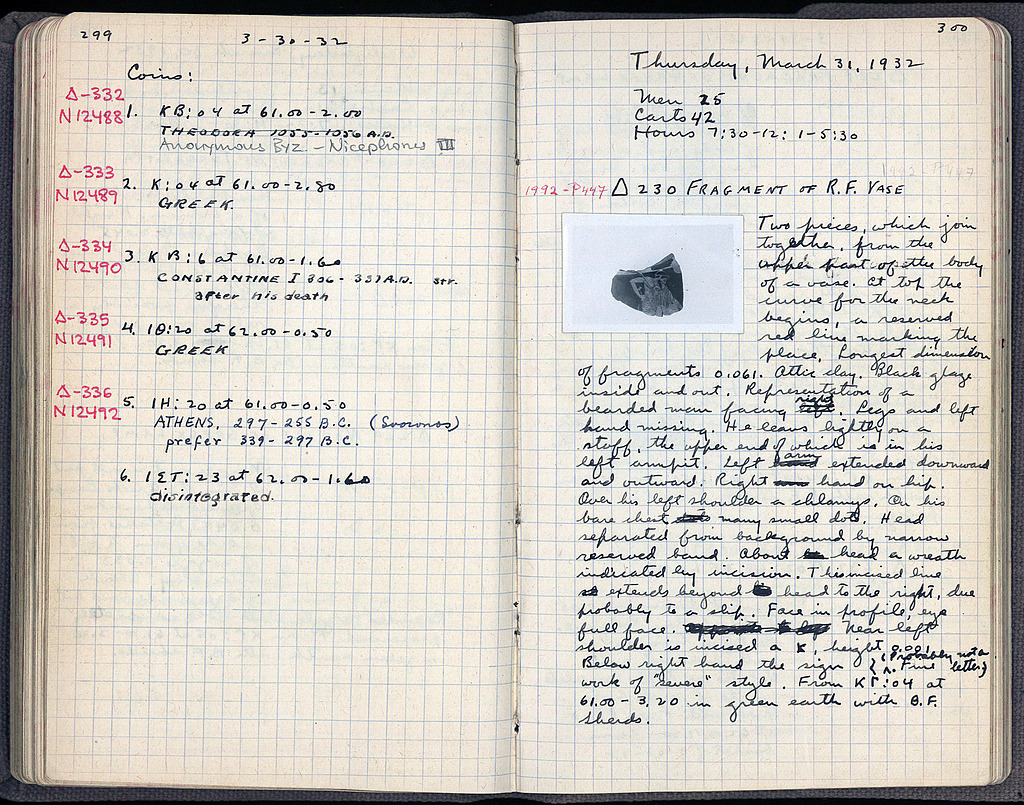 299
3-30-32
Coins:
Δ-332
N12488
1. KB:04 at 61.00-2.00
THEODORA 1055-1056 A.D.
Anonymous Byz. - Nicephorus III
Δ-333
N12489
2. K:04 at 61.00-2.80
GREEK.
Δ-334
N12490
3. KB:6 at 61.00-1.60
CONSTANTINE I 306-337 A.D. str.
after his death
Δ-335
N12491
4. IΘ:20 at 62.00-0.50
GREEK
Δ-336
N12492
5. IH:20 at 61.00-0.50
ATHENS, 297-255 B.C. (Svoronos)
prefer 339-297 B.C.
6. IΣT:23 at 62.00-1.60
disintegrated.
300
Thursday, March 31, 1932
Men 25
Carts 42
Hours 7:30-12: 1-5:30
1992-P447
1992-P447 Δ 230 FRAGMENT OF R.F. VASE
Two pieces, which join
together, from the
upper part of the body
of a vase. At top the
curve for the neck
begins, a reserved
red line marking the
place. Longest dimension
of fragments 0.061. Attic clay. Black glaze
inside and out. Representation of a
bearded man facing left right. Legs and left
hand missing. He leans lightly on a
staff, the upper end of which is in his
left armpit. Left arm extended downward
and outward. Right hand on hip.
Over his left shoulder a chlamys. On his
bare chest many small dots. Head
separated from background by narrow
reserved band. About head a wreath
indicated by incision. This incised line
extends beyond head to the right, due
probably to a slip. Face in profile, eye
full face. Near left
shoulder is incised a K, height 0.001
Below right hand the sign { (Probably not a letter)
Λ. Fine
work of "severe" style. From KΓ:04 at
61.00-3.20 in green earth with B.F.
sherds.